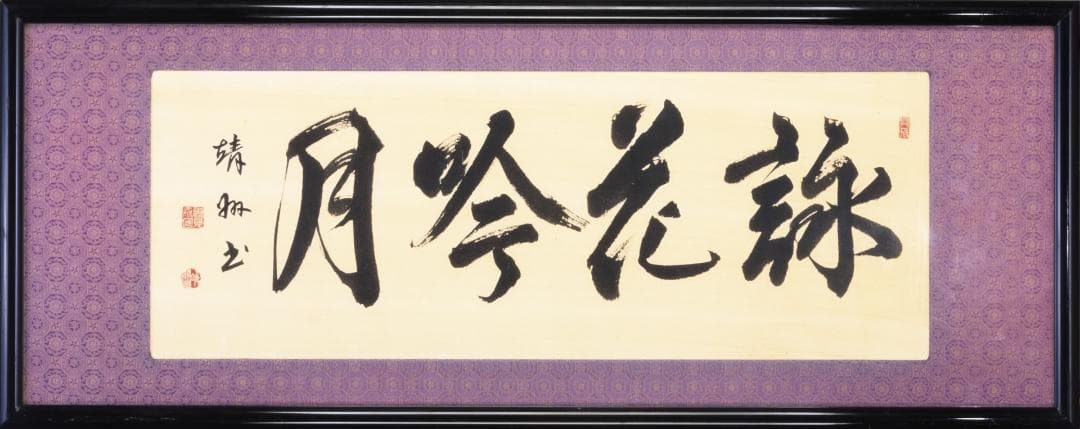 詠花吟月
靖州書